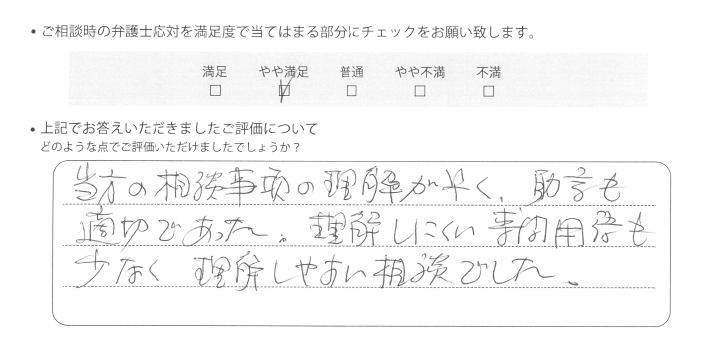 • ご相談時の弁護士応対を満足度で当てはまる部分にチェックをお願い致します。
満足 やや満足 普通 やや不満 不満
□ ☑ □ □ □
• 上記でお答えいただきましたご評価について
どのような点でご評価いただけましたでしょうか？
当方の相談事項の理解が早く、助言も
適切であった。理解しにくい専門用語も
少なく理解しやすい相談でした。